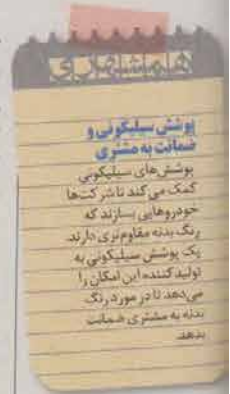 پوشش سیلیکونی و
ضمانت به مشتری
پوشش‌های سیلیکونی
کمک می کند تا شرکت‌ها
خودروهایی بسازند که
رنگ بدنه مقاوم‌تری دارند.
یک پوشش سیلیکونی به
تولید کننده این امکان را
می‌دهد تا در مورد رنگ
بدنه به مشتری ضمانت
بدهد.